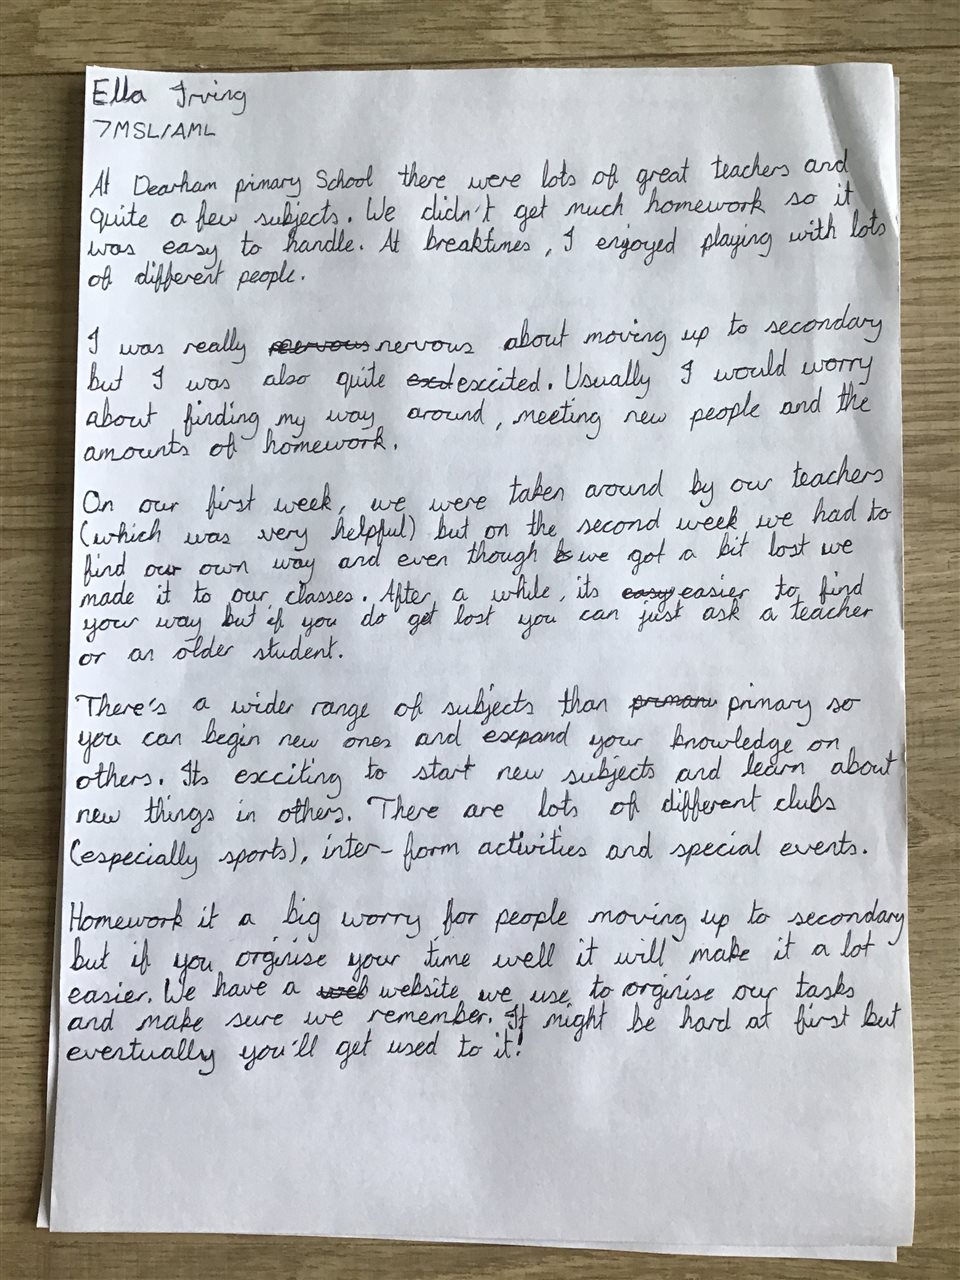 Ella Irving
7MSL/AML
At Dearham primary School there were lots of great teachers and
quite a few subjects. We didn't get much homework so it
was easy to handle. At breaktimes, I enjoyed playing with lots
of different people.
I was really nervous nervous about moving up to secondary
but I was also quite exd excited. Usually I would worry
about finding my way around, meeting new people and the
amounts of homework.
On our first week, we were taken around by our teachers
(which was very helpful) but on the second week we had to
find our own way and even though we got a bit lost we
made it to our classes. After a while, its easy easier to find
your way but if you do get lost you can just ask a teacher
or an older student.
There's a wider range of subjects than primary primary so
you can begin new ones and expand your knowledge on
others. Its exciting to start new subjects and learn about
new things in others. There are lots of different clubs
(especially sports), inter-form activities and special events.
Homework it a big worry for people moving up to secondary
but if you orginise your time well it will make it a lot
easier. We have a website we use to orginise our tasks
and make sure we remember. It might be hard at first but
eventually you'll get used to it!